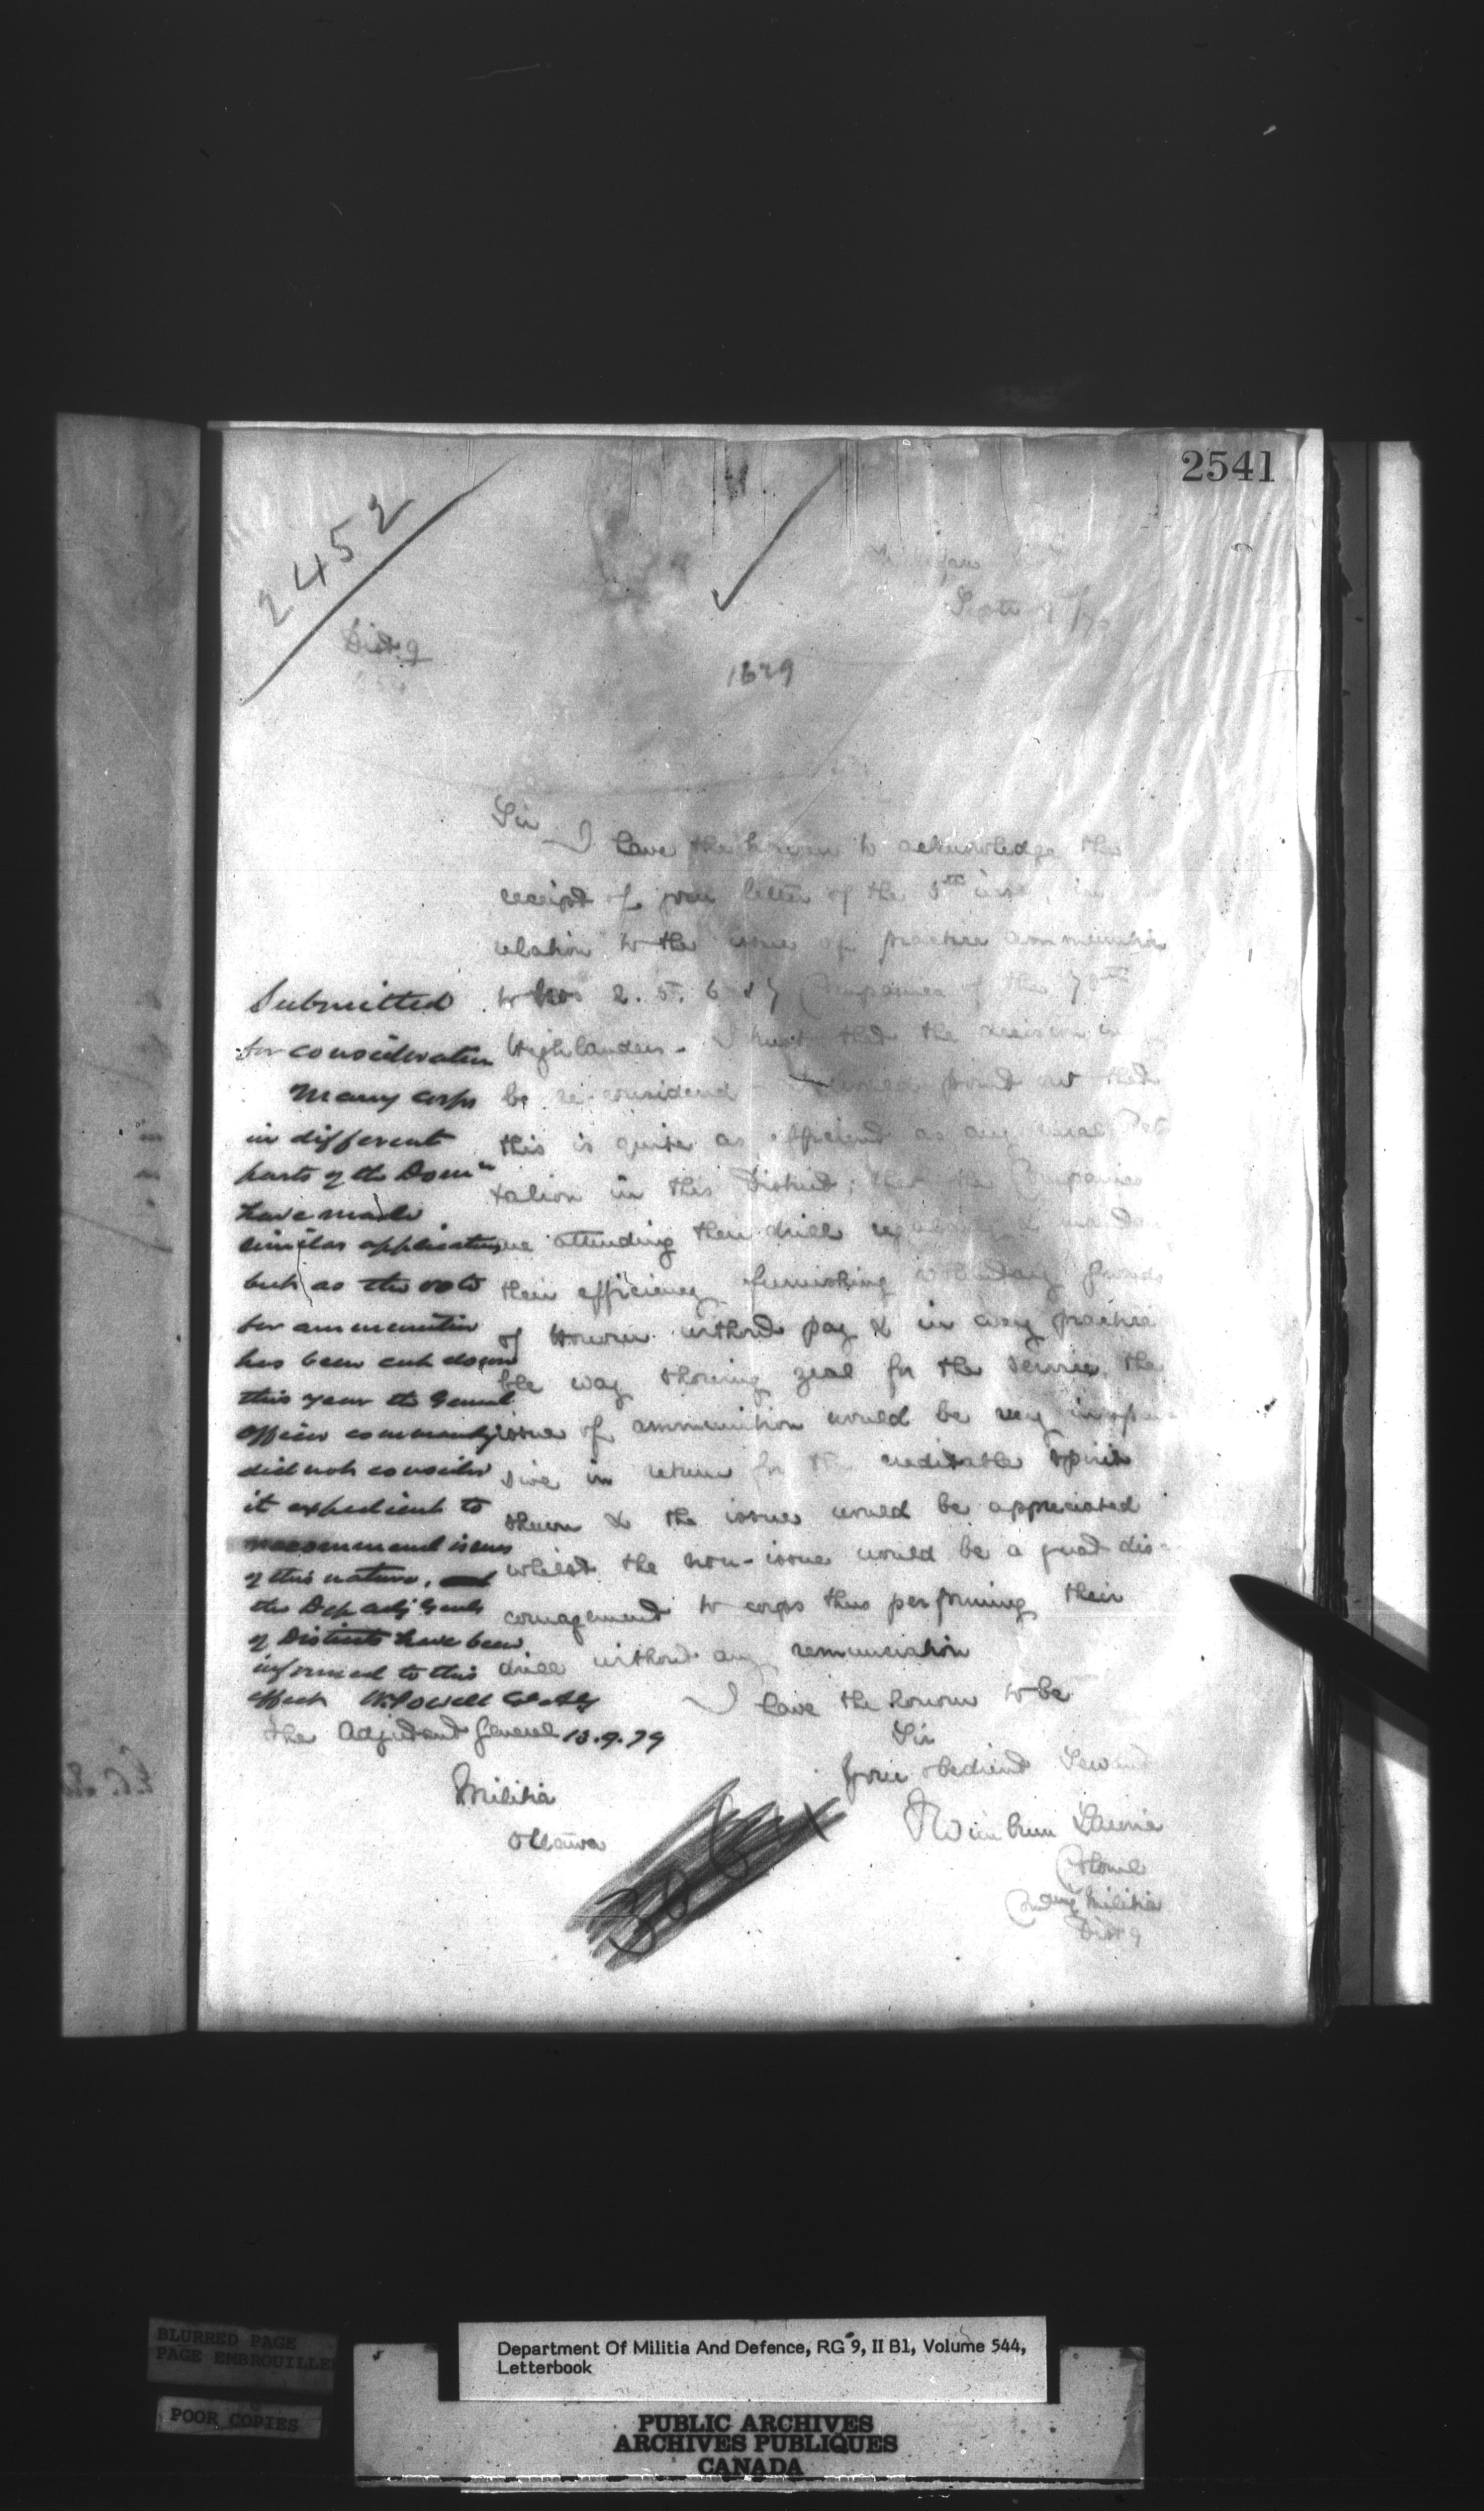 2541
2452
Dist. 9
1629
Sir
I have the honour to acknowledge the
receipt of your letter of the 5th inst, in
relation to the issue of practice ammunition
to Nos 2. 5. 6 & 7 Companies of the
Highlanders. I trust that the decision
be re-considered point out that
this is quite as efficient as any rural Bat
talion in this District; that the Companies
are attending their drill regularly &
their efficiency furnishing
of Honour without pay & in every practica
ble way showing zeal for the service. the
issue of ammunition would be very inexpen
sive in return for the creditable spirit
shewn & the issue would be appreciated
whilst the non-issue would be a great dis
couragement to corps thus performing their
drill without any remuneration
I have the honour to be
Sir
Your obedient Servant
Laurie
Colonel
Comdg Militia
Dist 9
The Adjutant General
Militia
Ottawa
Submitted
for consideration
Many corps
in different
parts of the Domn
have made
similar application
but as the vote
for ammunition
has been cut down
this year the General
officer commanding
did not consider
it expedient to
recommend issues
of this nature,
the Dep Adj Genls
of Districts have been
informed to this
effect W. Powell Col AG
13.9.79
BLURRED PAGE
PAGE EMBROUILLEE
POOR COPIES
Department Of Militia And Defence, RG 9, II B1, Volume 544,
Letterbook
PUBLIC ARCHIVES
ARCHIVES PUBLIQUES
CANADA